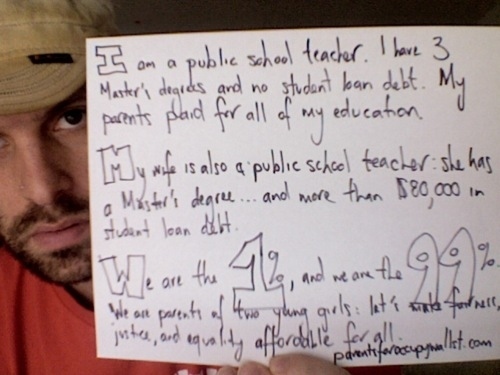 I am a public school teacher. I have 3
Master's degrees and no student loan debt. My
parents paid for all of my education.
My wife is also a public school teacher: she has
a Master's degree... and more than $80,000 in
student loan debt.
We are the 1%, and we are the 99%.
We are parents of two young girls: let's make fairness,
justice, and equality affordable for all.
parentsforoccupywallst.com